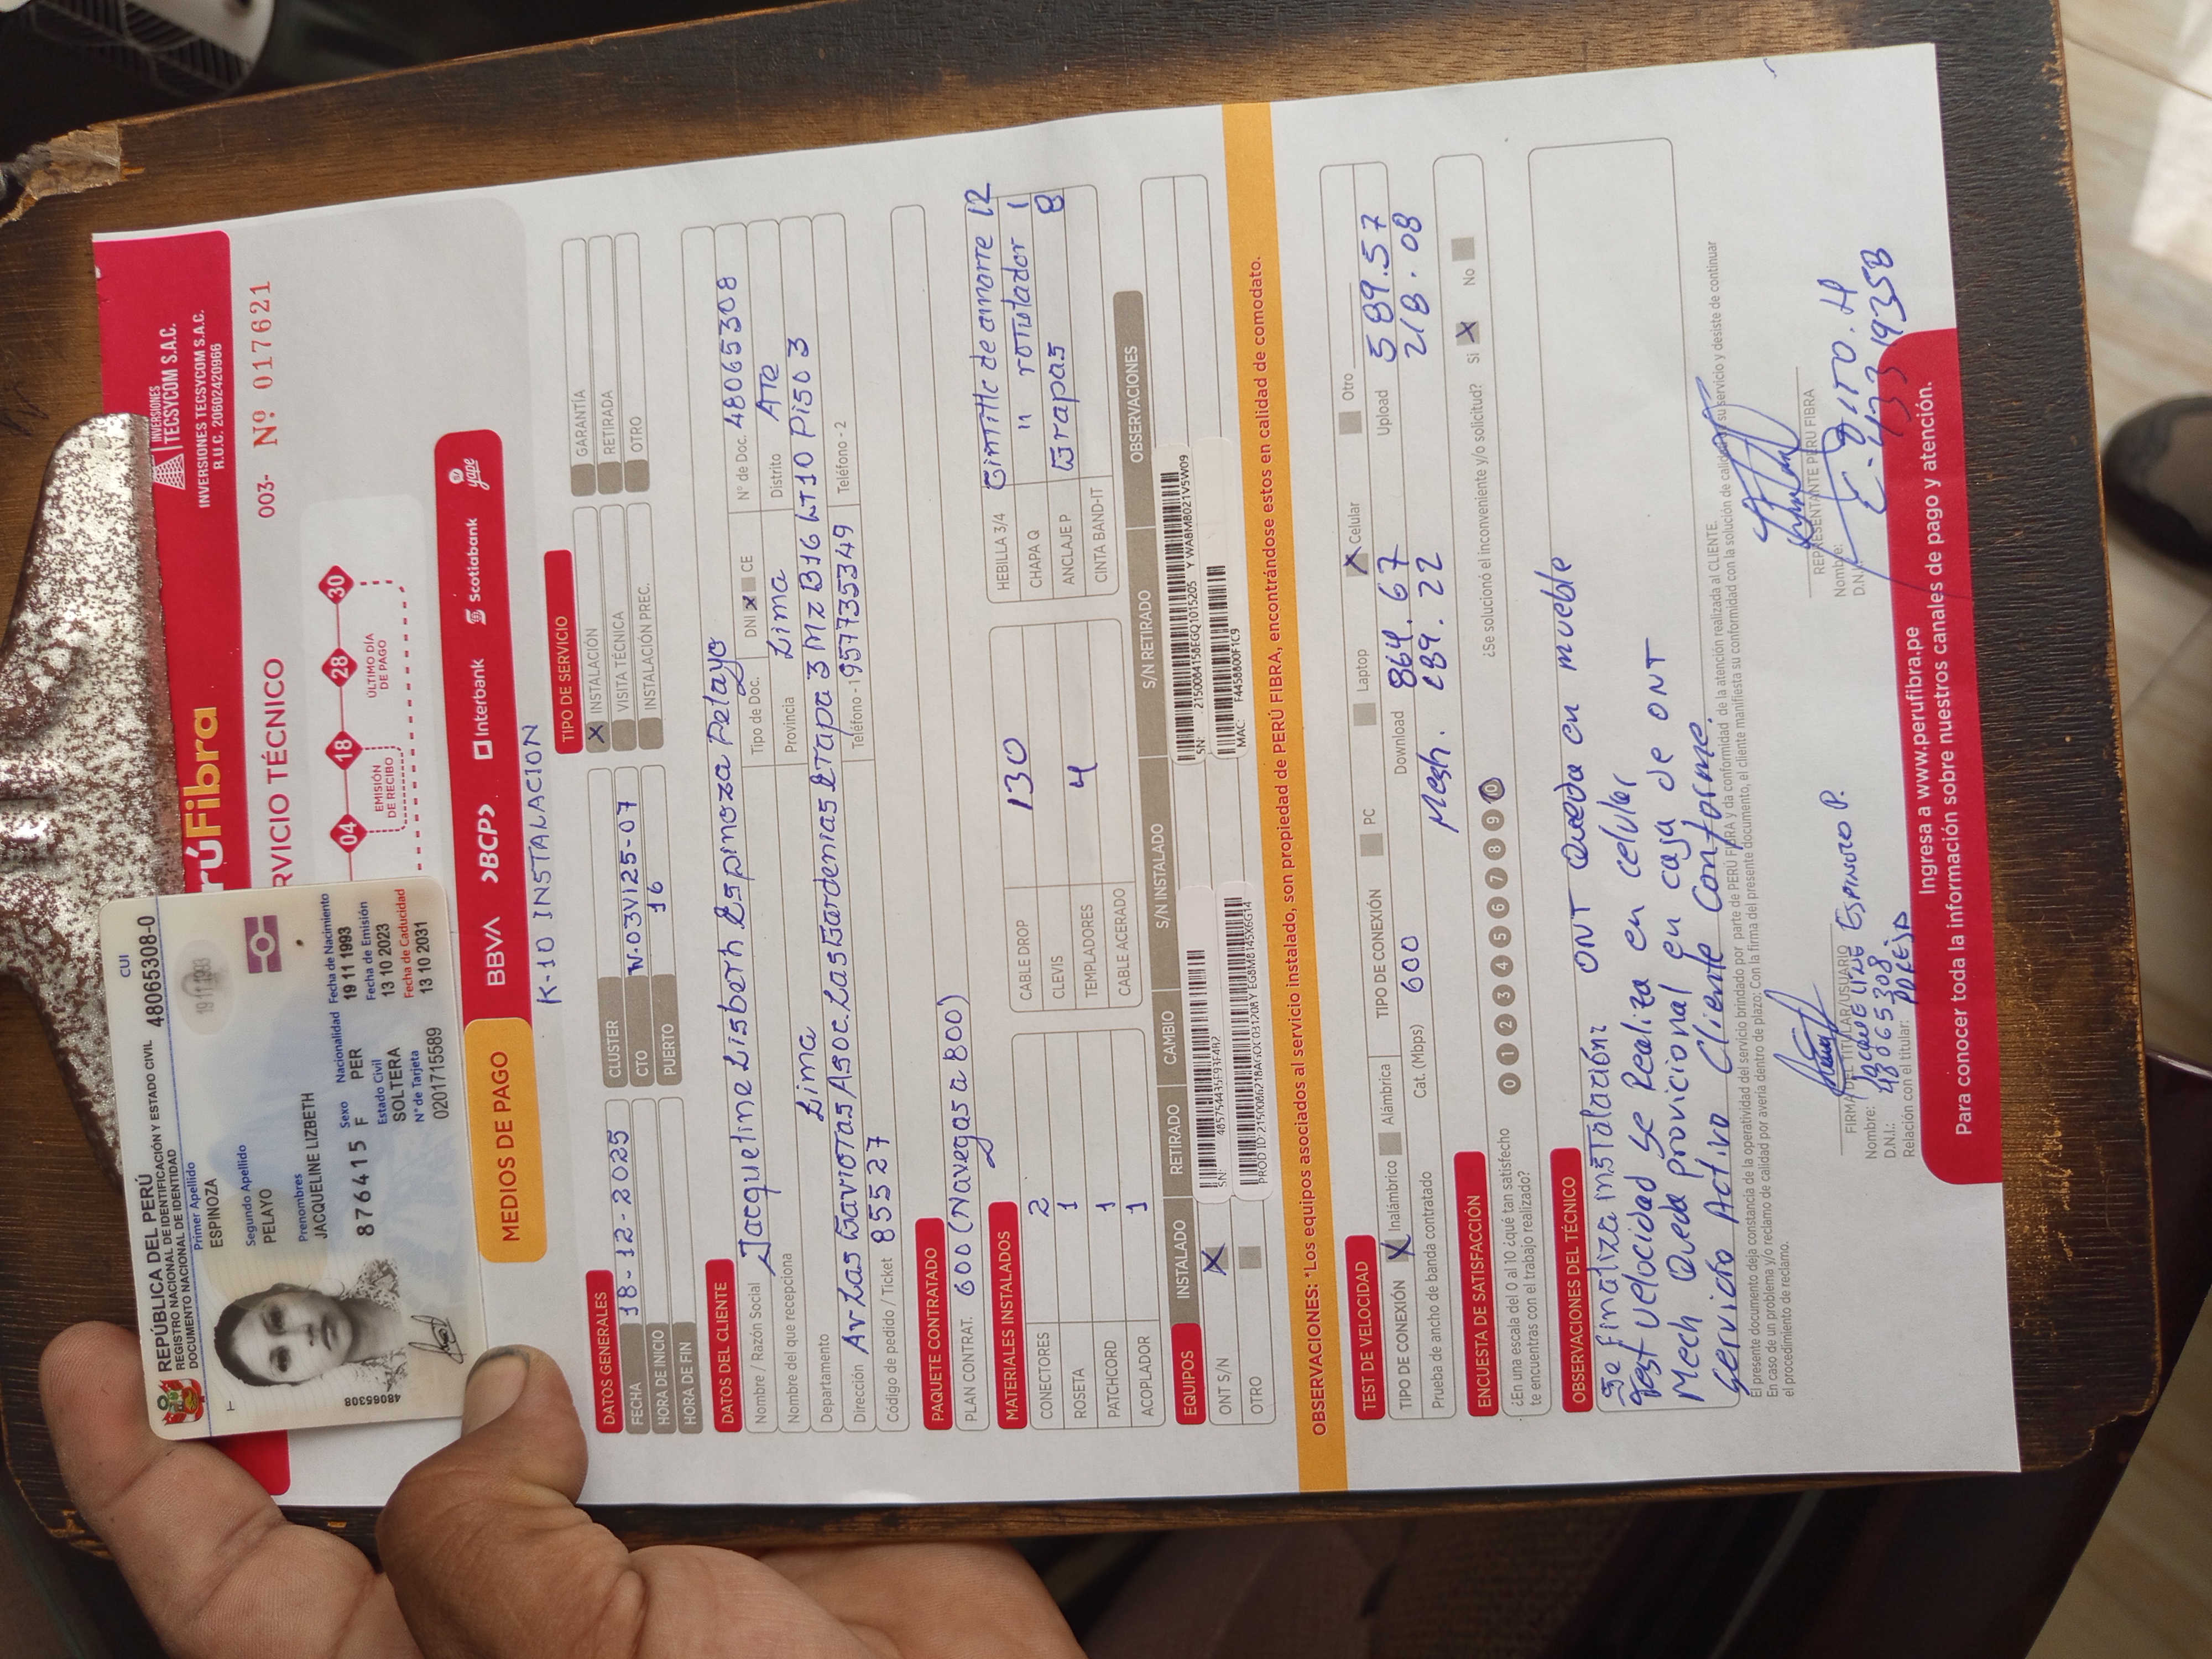 REPÚBLICA DEL PERÚ
REGISTRO NACIONAL DE IDENTIFICACIÓN Y ESTADO CIVIL
DOCUMENTO NACIONAL DE IDENTIDAD
CUI 48065308-0
Primer Apellido
ESPINOZA
Segundo Apellido
PELAYO
Prenombres
JACQUELINE LIZBETH
Sexo F
Nacionalidad PER
Estado Civil
SOLTERA
N° de Tarjeta
0201715589
Fecha de Nacimiento
19 11 1993
Fecha de Emisión
13 10 2023
Fecha de Caducidad
13 10 2031
876415
48065308
rúFibra
INVERSIONES
TECSYCOM S.A.C.
INVERSIONES TECSYCOM S.A.C.
R.U.C. 20602420966
RVICIO TÉCNICO
003- Nº 017621
04 18 28 30
EMISIÓN DE RECIBO
ÚLTIMO DÍA DE PAGO
MEDIOS DE PAGO BBVA >BCP> Interbank Scotiabank yape
K-10 INSTALACION
DATOS GENERALES
FECHA 18-12-2025
HORA DE INICIO
HORA DE FIN
CLUSTER
CTO W-03V125-07
PUERTO 16
TIPO DE SERVICIO
X INSTALACIÓN
VISITA TÉCNICA
INSTALACIÓN PREC.
GARANTÍA
RETIRADA
OTRO
DATOS DEL CLIENTE
Nombre / Razón Social Jacqueline Lisbeth Espinoza Pelayo
Tipo de Doc. DNI X CE N° de Doc. 48065308
Nombre del que recepciona
Departamento Lima Provincia Lima Distrito ATe
Dirección Av Las Gaviotas Asoc. Las Gardenias 2 Tapa 3 Mz B16 LT10 Piso 3
Código de pedido / Ticket 85527
Teléfono - 1 957735349 Teléfono - 2
PAQUETE CONTRATADO
PLAN CONTRAT. 600 (Navegas a 800)
MATERIALES INSTALADOS
CONECTORES 2
ROSETA 1
PATCHCORD 1
ACOPLADOR 1
CABLE DROP 130
CLEVIS
TEMPLADORES 4
CABLE ACERADO
HEBILLA 3/4 Cintillo de amarre 12
CHAPA Q " rotulador 1
ANCLAJE P Grapas 8
CINTA BAND-IT
EQUIPOS INSTALADO RETIRADO CAMBIO S/N INSTALADO S/N RETIRADO OBSERVACIONES
ONT S/N X
OTRO
SN:
SN: 2150084158EGQ1015205 Y WABMB021V5W09
MAC: F4458800F1C9
OBSERVACIONES: *Los equipos asociados al servicio instalado, son propiedad de PERÚ FIBRA, encontrándose estos en calidad de comodato.
TEST DE VELOCIDAD
TIPO DE CONEXIÓN X Inalámbrico Alámbrica TIPO DE CONEXIÓN PC Laptop X Celular Otro
Prueba de ancho de banda contratado Cat. (Mbps) 600 Download 864.67 Upload 589.57
Mesh. 289.22 218.08
ENCUESTA DE SATISFACCIÓN
¿En una escala del 0 al 10 ¿qué tan satisfecho
te encuentras con el trabajo realizado?
0 1 2 3 4 5 6 7 8 9 10
¿Se solucionó el inconveniente y/o solicitud? Si X No
OBSERVACIONES DEL TÉCNICO
Se Finaliza instalación ONT Queda en mueble
Test velocidad se Realiza en celular
Mech Queda provicional en caja de ONT
Servicio Activo Cliente Conforme.
El presente documento deja constancia de la operatividad del servicio brindado por parte de PERÚ FIBRA y da conformidad de la atención realizada al CLIENTE.
En caso de un problema y/o reclamo de calidad por avería dentro de plazo: Con la firma del presente documento, el cliente manifiesta su conformidad con la solución de calidad su servicio y desiste de continuar
el procedimiento de reclamo.
FIRMA DEL TITULAR/USUARIO
Nombre: Jacqueline Espinoza P.
D.N.I.: 48065308
Relación con el titular:
REPRESENTANTE PERÚ FIBRA
Nombre:
D.N.I.
Ingresa a www.perufibra.pe
Para conocer toda la información sobre nuestros canales de pago y atención.